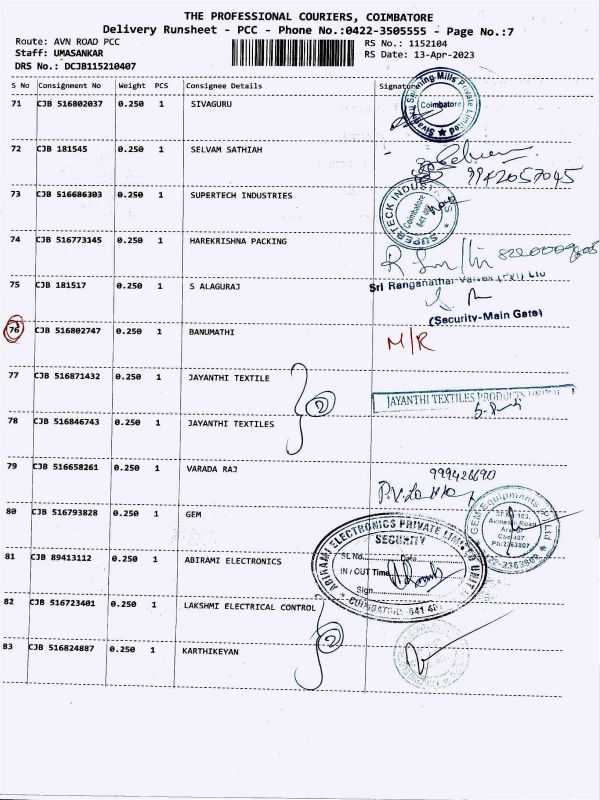 THE PROFESSIONAL COURIERS, COIMBATORE
Delivery Runsheet - PCC - Phone No.:0422-3505555 - Page No.:7
Route: AVN ROAD PCC
RS No.: 1152104
Staff: UMASANKAR
RS Date: 13-Apr-2023
DRS No.: DCJB115210407
S No Consignment No Weight PCS Consignee Details Signature
71 CJB 516802037 0.250 1 SIVAGURU
Coimbatore
72 CJB 181545 0.250 1 SELVAM SATHIAH
9942057045
73 CJB 516686303 0.250 1 SUPERTECH INDUSTRIES
SUPERTECK INDUSTRIES
Coimbatore
74 CJB 516773145 0.250 1 HAREKRISHNA PACKING
75 CJB 181517 0.250 1 S ALAGURAJ
Sri Ranganathar Valves (Pvt) Ltd
(Security-Main Gate)
76 CJB 516802747 0.250 1 BANUMATHI
M/R
77 CJB 516871432 0.250 1 JAYANTHI TEXTILE
2
JAYANTHI TEXTILES PRODUCTS
78 CJB 516846743 0.250 1 JAYANTHI TEXTILES
79 CJB 516658261 0.250 1 VARADA RAJ
80 CJB 516793828 0.250 1 GEM
GEM Equipments P Ltd
81 CJB 89413112 0.250 1 ABIRAMI ELECTRONICS
ABIRAMI ELECTRONICS PRIVATE LIMITED UNIT
SECURITY
SL No. Date
IN / OUT Time
Sign
82 CJB 516723401 0.250 1 LAKSHMI ELECTRICAL CONTROL
2
83 CJB 516824887 0.250 1 KARTHIKEYAN